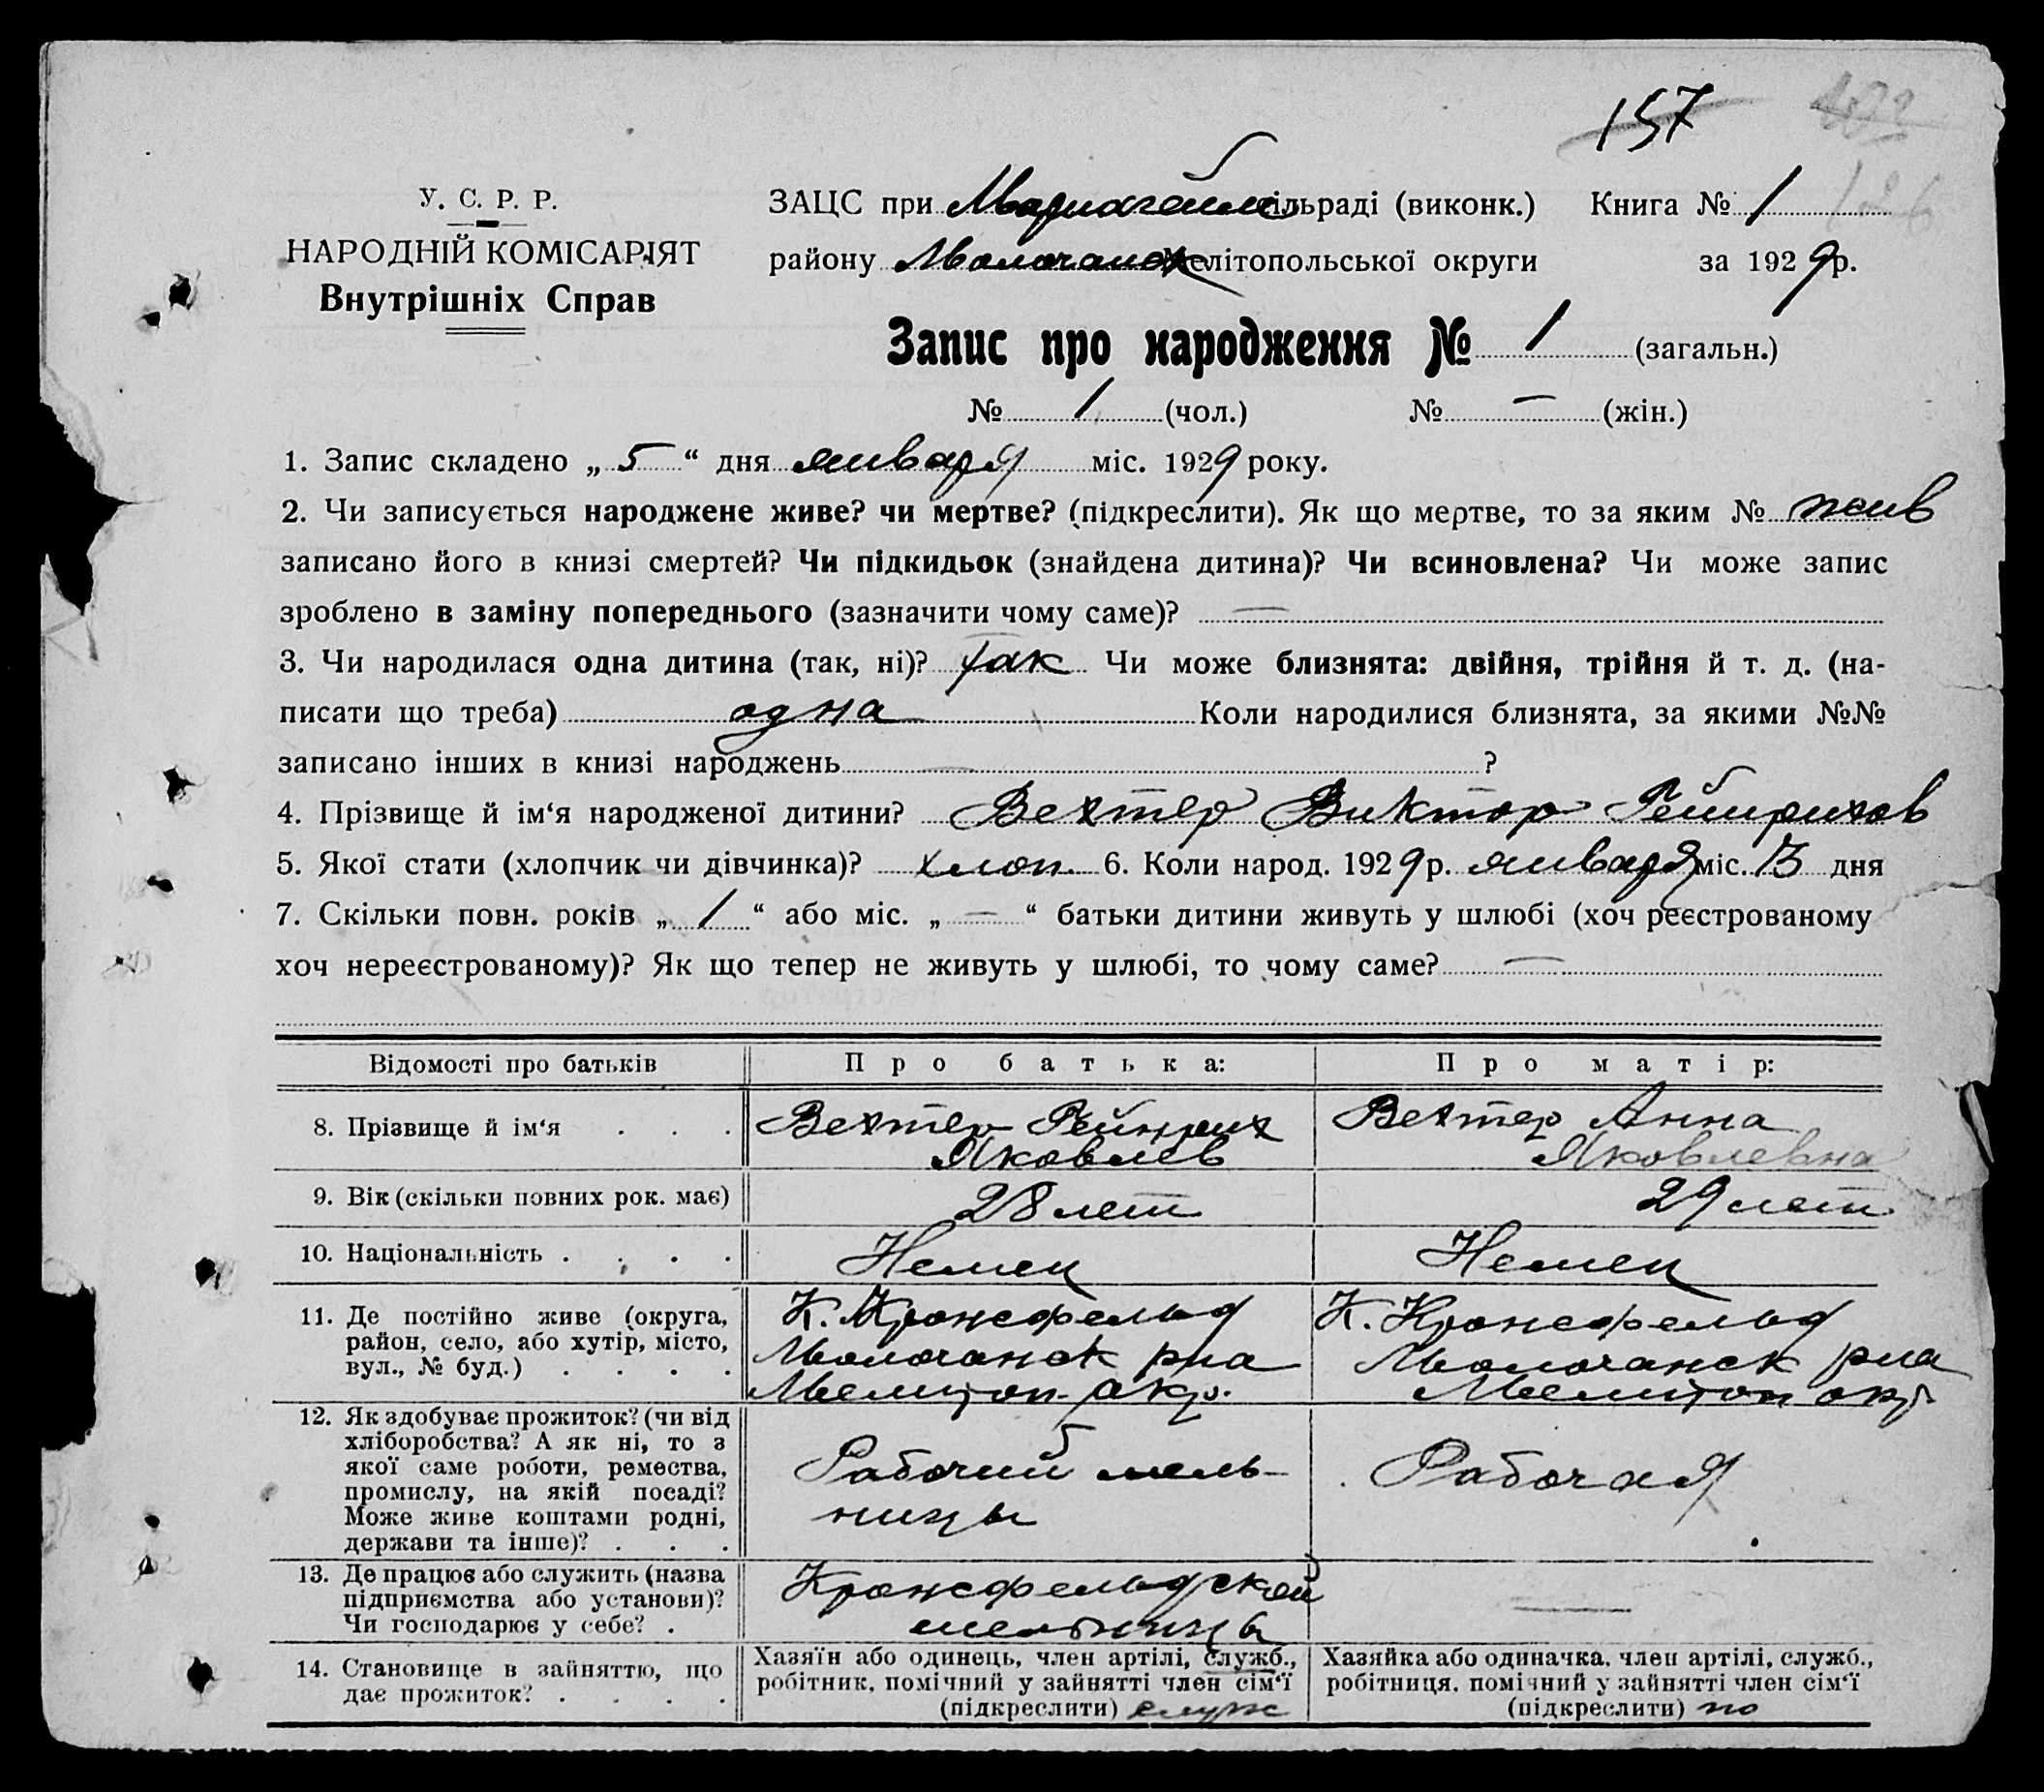 157
126
У. С. Р. Р.
НАРОДНІЙ КОМІСАРІЯТ
Внутрішніх Справ
ЗАЦС при сільраді (виконк.) Книга № 1
району Молочанск Мелітопольської округи за 1929 р.
Запис про народження № 1 (загальн.)
№ 1 (чол.) № — (жін.)
1. Запис складено „ 5 “ дня января міс. 1929 року.
2. Чи записується народжене живе? чи мертве? (підкреслити). Як що мертве, то за яким № жив
записано його в книзі смертей? Чи підкидьок (знайдена дитина)? Чи всиновлена? Чи може запис
зроблено в заміну попереднього (зазначити чому саме)? —
3. Чи народилася одна дитина (так, ні)? так Чи може близнята: двійня, трійня й т. д. (на-
писати що треба) одна Коли народилися близнята, за якими №№
записано інших в книзі народжень — ?
4. Прізвище й ім‘я народженої дитини? Вехтер Виктор Гейнрихов
5. Якої стати (хлопчик чи дівчинка)? хлоп. 6. Коли народ. 1929 р. января міс. дня
7. Скільки повн. років „ 1 “ або міс. „ — “ батьки дитини живуть у шлюбі (хоч реєстрованому
хоч нереєстрованому)? Як що тепер не живуть у шлюбі, то чому саме? —
Відомості про батьків Про батька: Про матір:
8. Прізвище й ім‘я . . . Вехтер Гейнрих Вехтер Анна
Яковлев Яковлевна
9. Вік (скільки повних рок. має) 28 лет 29 лет
10. Національність . . . . Немец Немец
11. Де постійно живе (округа,
район, село, або хутір, місто,
вул., № буд.) . . . .
К. Кронсфельд
Молочанск рна
Мелитоп. окр.
К. Кронсфельд
Молочанск рна
Мелитоп окр.
12. Як здобуває прожиток? (чи від
хліборобства? А як ні, то з
якої саме роботи, ремества,
промислу, на якій посаді?
Може живе коштами родні,
держави та інше)? . . .
Рабочий мель-
ницы
Рабочая
13. Де працює або служить (назва
підприємства або установи)?
Чи господарює у себе? .
Кронсфельдской
мельницы
—
14. Становище в зайняттю, що
дає прожиток? . . . .
Хазяїн або одинець, член артілі, служб.,
робітник, помічний у зайнятті член сім‘ї
(підкреслити) служ
Хазяйка або одиначка, член артілі, служб.,
робітниця, помічний у зайнятті член сім‘ї
(підкреслити)